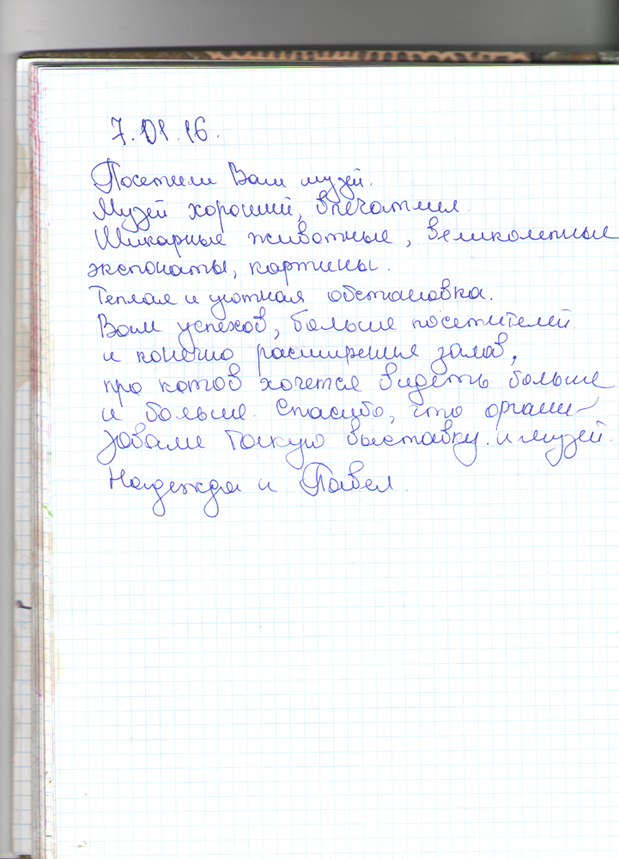 7.01.16.
Посетили Ваш музей.
Музей хороший, впечатлил.
Шикарные животные, великолепные
экспонаты, картины.
Теплая и уютная обстановка.
Вам успехов, больше посетителей
и конечно расширения залов,
про котов хочется видеть больше
и больше. Спасибо, что органи-
зовали такую выставку. и музей.
Надежда и Павел.